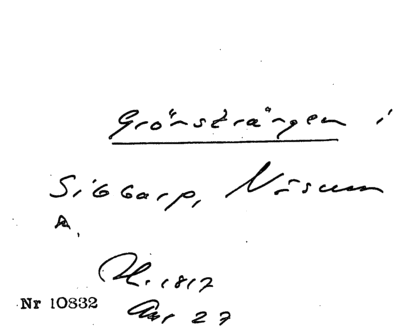 Grönsträngen i
Sibbarp, Näsum
A.
H. 1817
Nr 10832
27